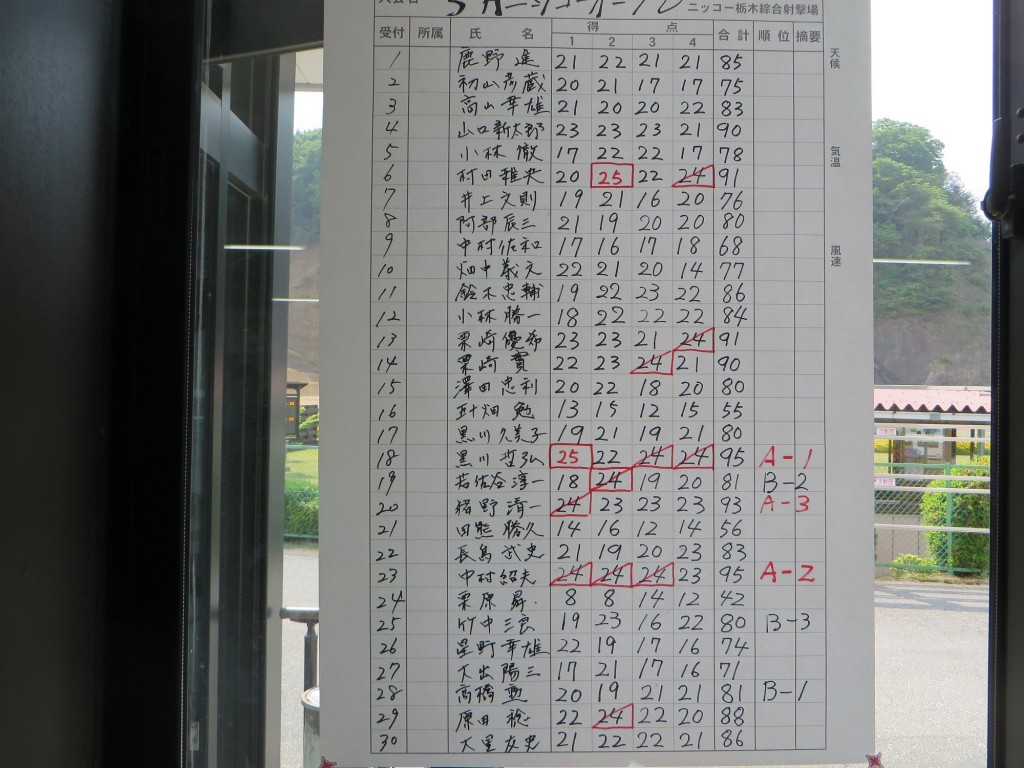 5月ニッコーオープン
ニッコー栃木綜合射撃場
受付 所属 氏名 得点 合計 順位 摘要
1 2 3 4
1 鹿野進 21 22 21 21 85
2 初山彦蔵 20 21 17 17 75
3 高山幸雄 21 20 20 22 83
4 山口新太郎 23 23 23 21 90
5 小林徹 17 22 22 17 78
6 村田雅央 20 25 22 24 91
7 井上文則 19 21 16 20 76
8 阿部辰三 21 19 20 20 80
9 中村佐和 17 16 17 18 68
10 畑中義文 22 21 20 14 77
11 鈴木忠輔 19 22 23 22 86
12 小林勝一 18 22 22 22 84
13 栗崎優希 23 23 21 24 91
14 栗崎實 22 23 24 21 90
15 澤田忠利 20 22 18 20 80
16 畑勉 13 15 12 15 55
17 黒川久美子 19 21 19 21 80
18 黒川哲弘 25 22 24 24 95 A-1
19 若佐谷淳一 18 24 19 20 81 B-2
20 猪野清一 24 23 23 23 93 A-3
21 田熊勝久 14 16 12 14 56
22 長島武史 21 19 20 23 83
23 中村紹夫 24 24 24 23 95 A-2
24 栗原昇 8 8 14 12 42
25 竹中三良 19 23 16 22 80 B-3
26 星野幸雄 22 19 17 16 74
27 大出陽三 17 21 17 16 71
28 高橋勲 20 19 21 21 81 B-1
29 原田稔 22 24 22 20 88
30 大里友史 21 22 22 21 86
天候
気温
風速